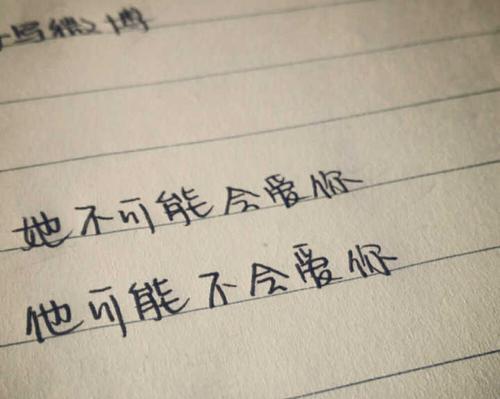 写微博
她不可能会爱你
他可能不会爱你